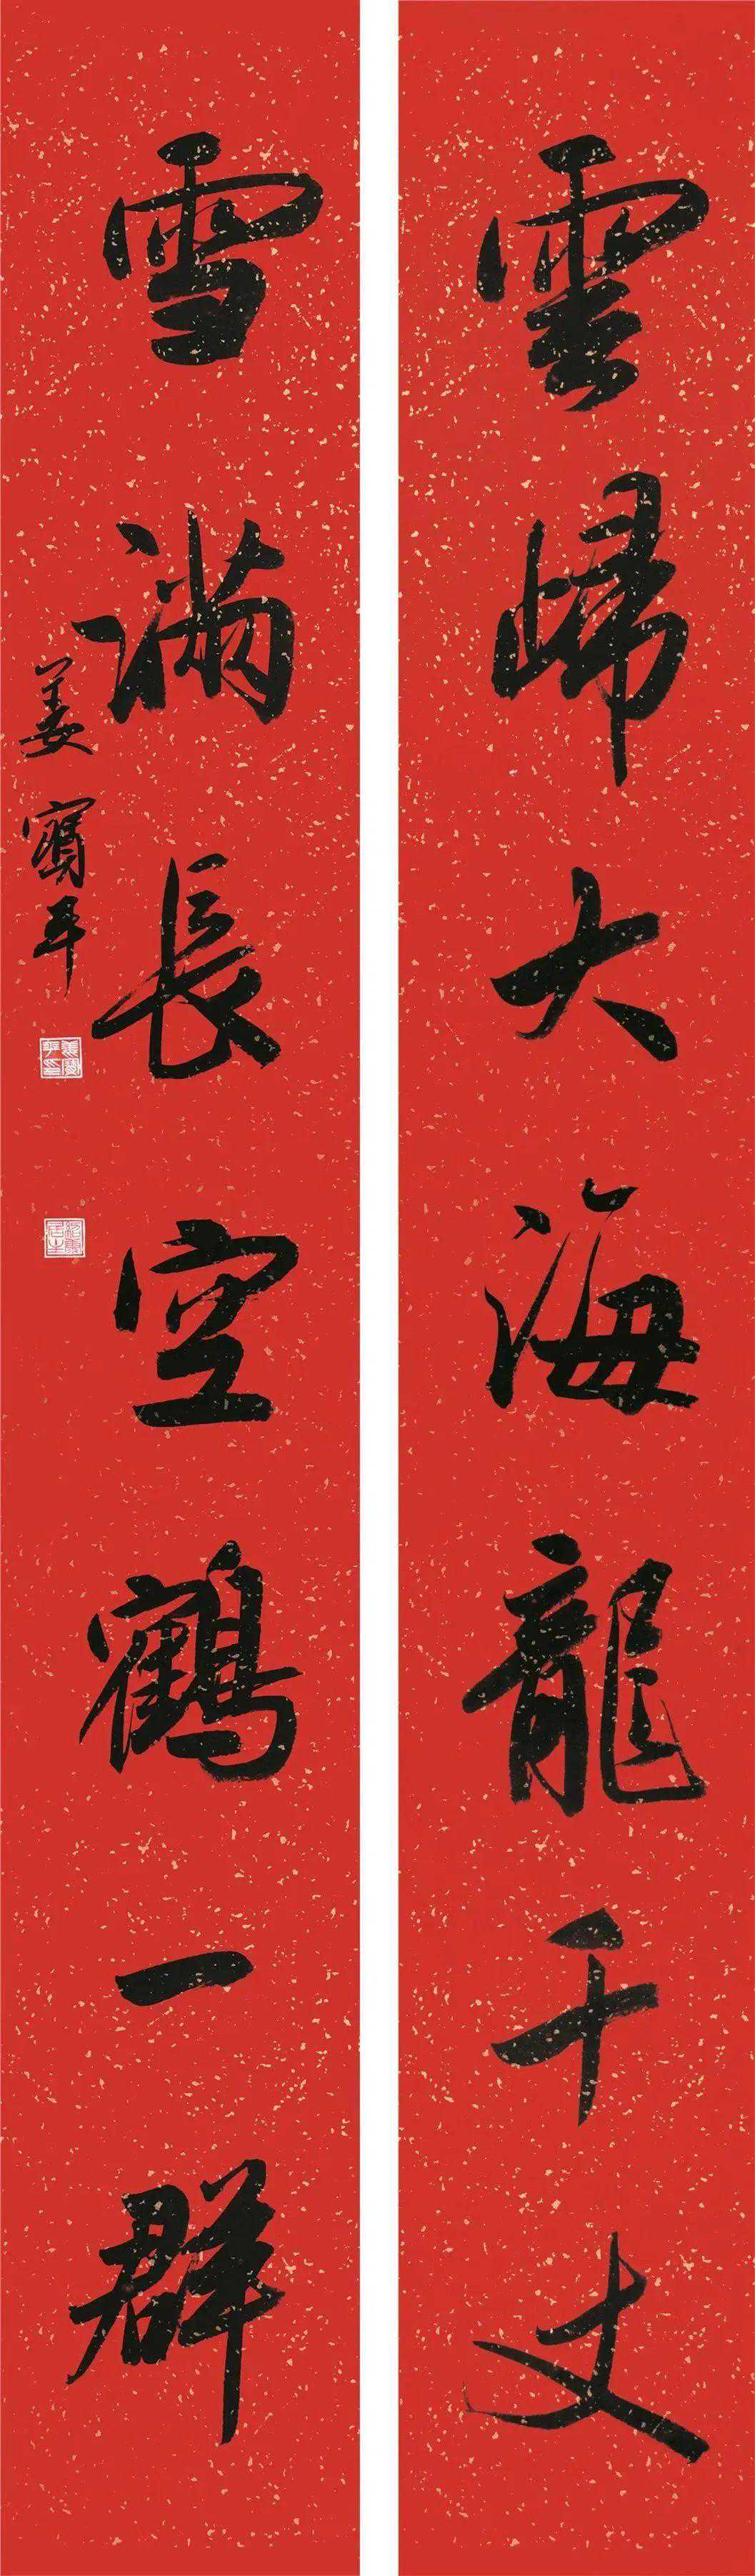 雲歸大海龍千丈
雪滿長空鶴一群
姜寶平